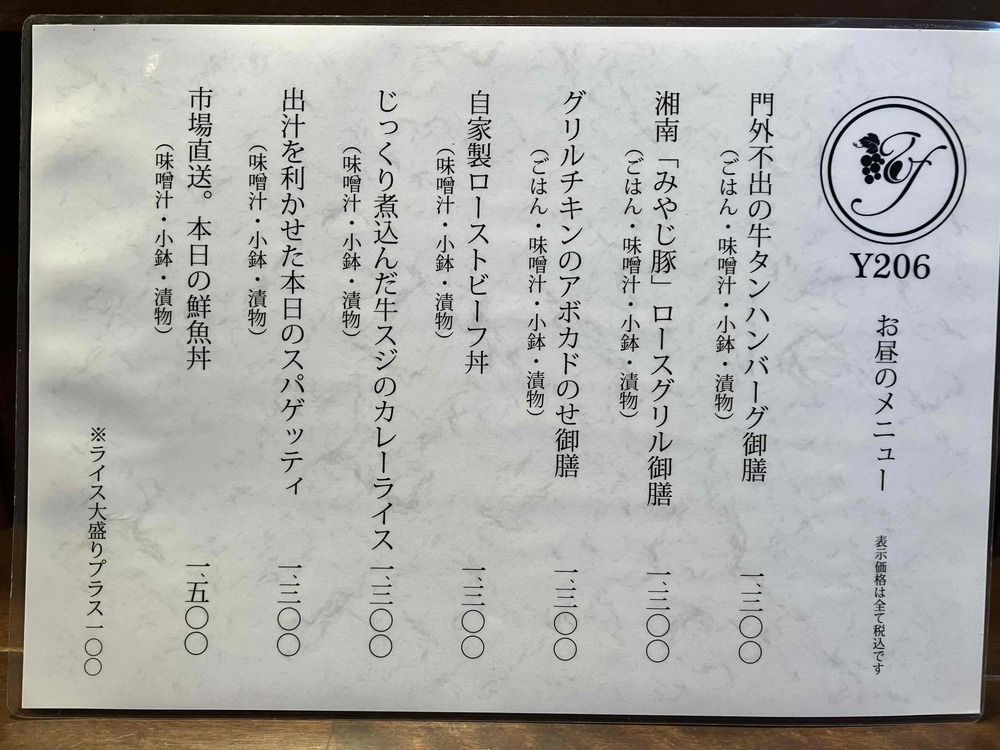 Y206
お昼のメニュー
表示価格は全て税込です
門外不出の牛タンハンバーグ御膳 一、三〇〇
（ごはん・味噌汁・小鉢・漬物）
湘南「みやじ豚」ロースグリル御膳 一、三〇〇
（ごはん・味噌汁・小鉢・漬物）
グリルチキンのアボカドのせ御膳 一、三〇〇
（ごはん・味噌汁・小鉢・漬物）
自家製ローストビーフ丼 一、三〇〇
（味噌汁・小鉢・漬物）
じっくり煮込んだ牛スジのカレーライス 一、三〇〇
（味噌汁・小鉢・漬物）
出汁を利かせた本日のスパゲッティ 一、三〇〇
（味噌汁・小鉢・漬物）
市場直送。本日の鮮魚丼 一、五〇〇
（味噌汁・小鉢・漬物）
※ライス大盛りプラス一〇〇